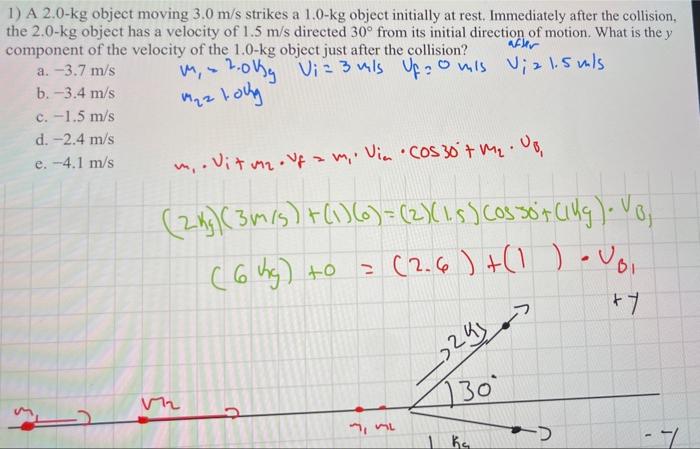 1) A 2.0-kg object moving 3.0 m/s strikes a 1.0-kg object initially at rest. Immediately after the collision,
the 2.0-kg object has a velocity of 1.5 m/s directed 30° from its initial direction of motion. What is the y
component of the velocity of the 1.0-kg object just after the collision?
after
a. −3.7 m/s
m₁ = 2.0kg Vi = 3 m/s Vf = 0 m/s Vi = 1.5 m/s
b. −3.4 m/s
m2 = 1.0kg
c. −1.5 m/s
d. −2.4 m/s
e. −4.1 m/s
m₁ · Vi + m2 · Vf = m₁ · Via · cos 30° + m2 · VB₁
(2kg)(3m/s) + (1)(0) = (2)(1.5) cos 30° + (1kg) · VB₁
(6 kg) + 0 = (2.6) + (1 ) · VB1
+y
2kg
30°
m1 m2
m1 m2
1 kg
-y